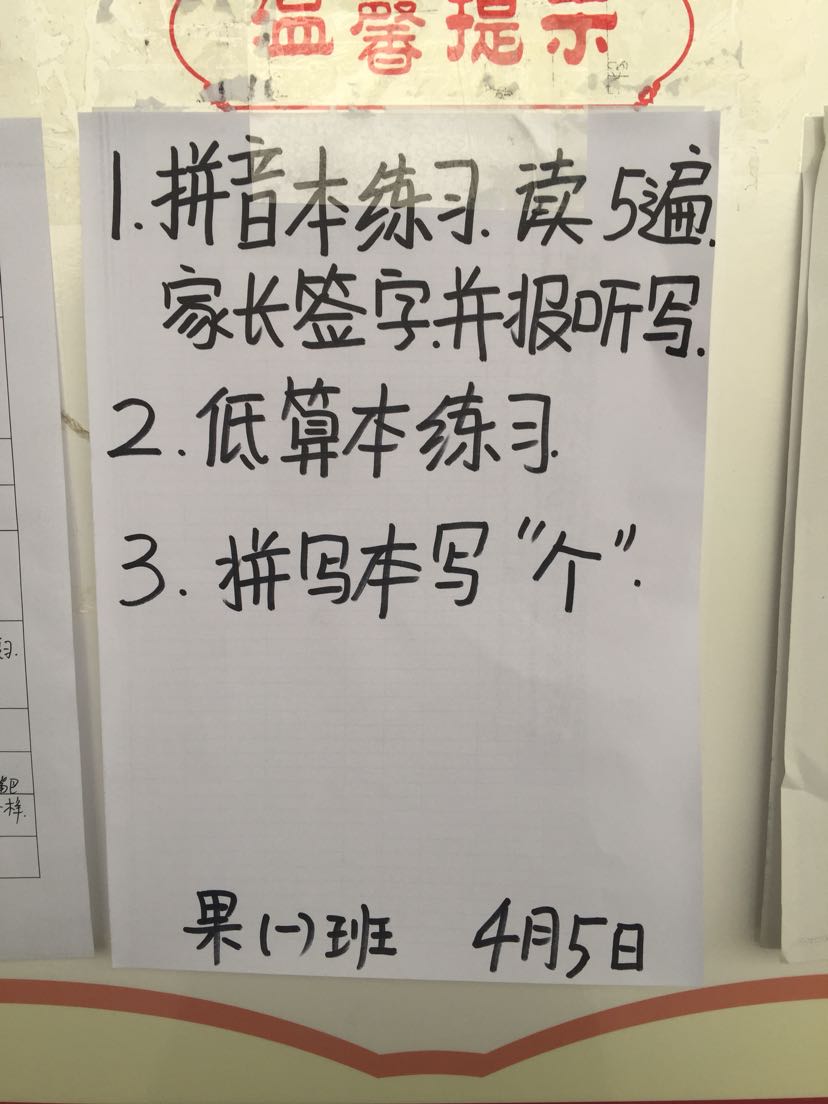 温馨提示
1.拼音本练习.读5遍.
家长签字.并报听写.
2.低算本练习.
3.拼写本写"个".
果(一)班 4月5日
习.
样.